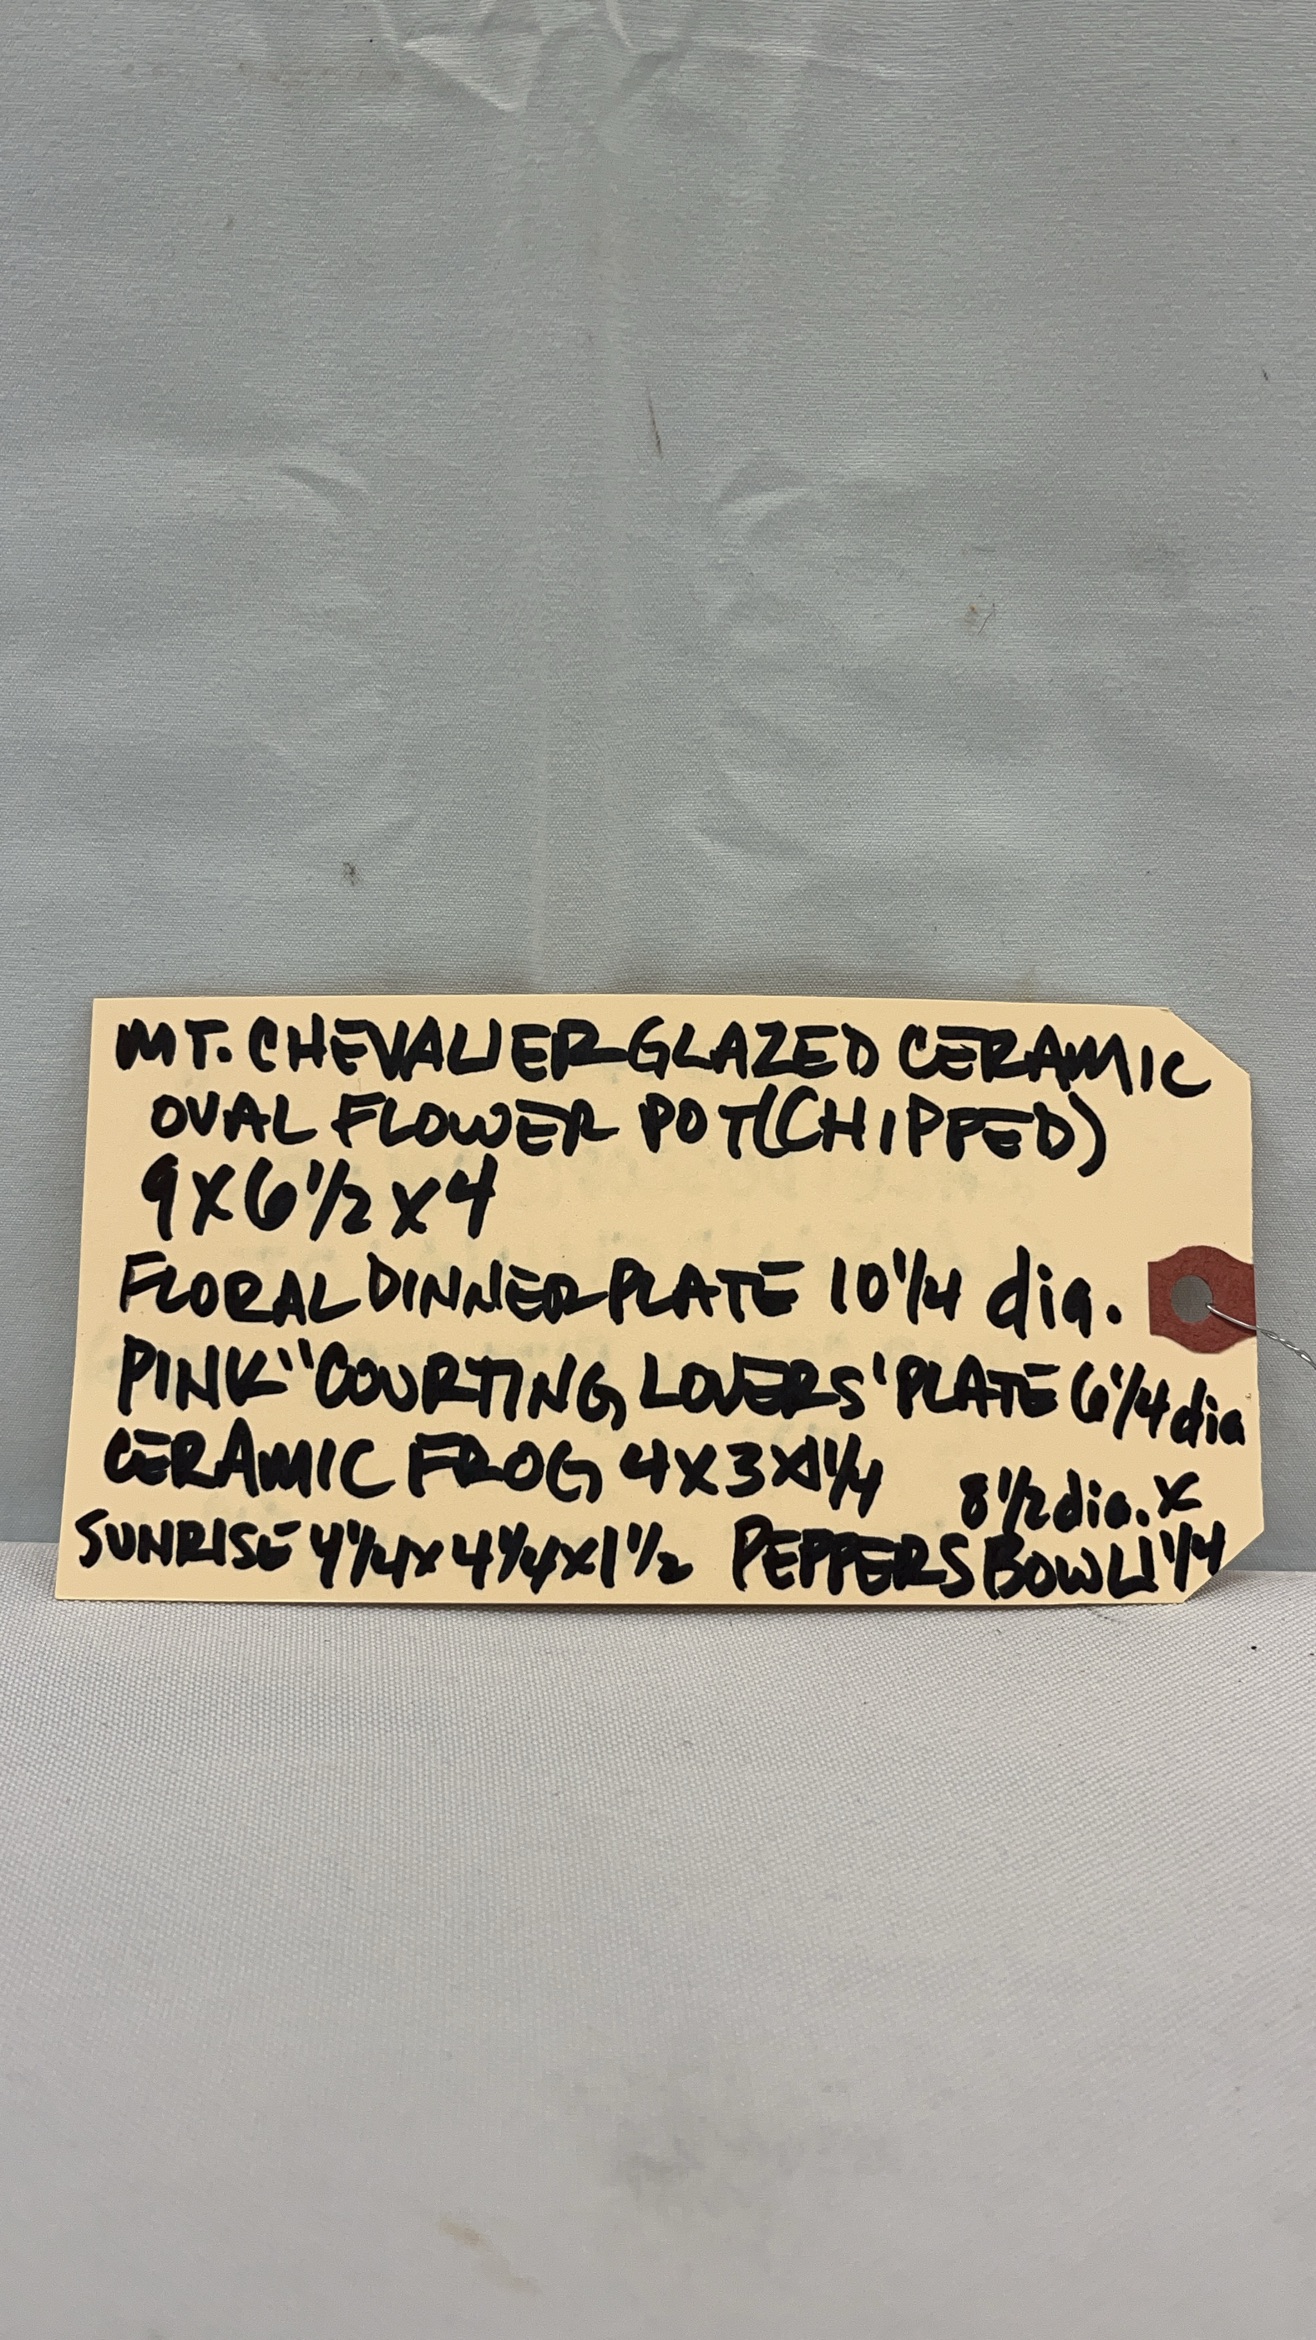 MT. CHEVALIER GLAZED CERAMIC
OVAL FLOWER POT (CHIPPED)
9 X 6 1/2 X 4
FLORAL DINNER PLATE 10 1/4 dia.
PINK "COURTING LOVERS' PLATE 6 1/4 dia
CERAMIC FROG 4 X 3 X 1 1/4
8 1/2 dia. X
SUNRISE 4 1/4 X 4 1/4 X 1 1/2 PEPPERS BOWL 1 1/4